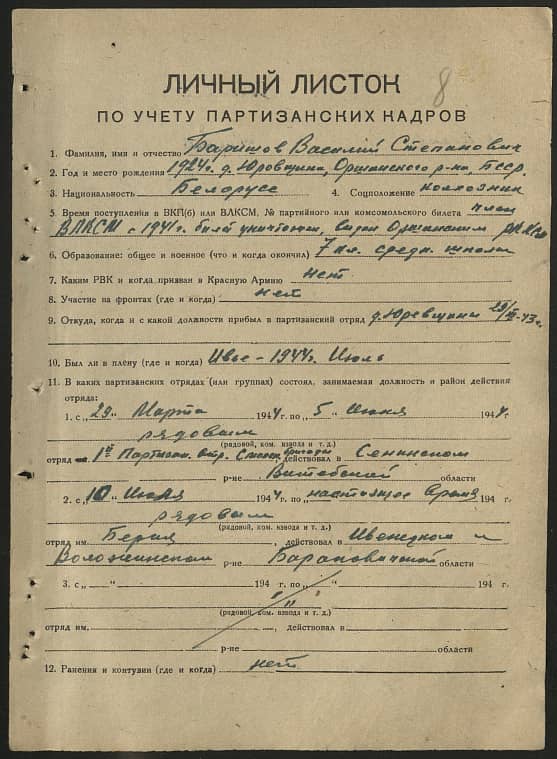 8
ЛИЧНЫЙ ЛИСТОК
ПО УЧЕТУ ПАРТИЗАНСКИХ КАДРОВ
1. Фамилия, имя и отчество Баришов Василий Степанович
2. Год и место рождения 1924г. д. Юровщина, Оршанского р-на, Бсср.
3. Национальность Белорусс 4. Соцположение колхозник
5. Время поступления в ВКП(б) или ВЛКСМ, № партийного или комсомольского билета член
ВЛКСМ с 1941г. билет уничтожен, выдан Оршанским
6. Образование: общее и военное (что и когда окончил) 7 кл. средн. школы
7. Каким РВК и когда призван в Красную Армию нет
8. Участие на фронтах (где и когда) нет
9. Откуда, когда и с какой должности прибыл в партизанский отряд д. Юревщины
10. Был ли в плену (где и когда) Ивье - 1944г. Июль
11. В каких партизанских отрядах (или группах) состоял, занимаемая должность и район действия
отряда:
1. с „29" Марта 1944 г. по „5" Июня 1944 г.
рядовым
(рядовой, ком. взвода и т. д.)
отряд 1й Партизан. отр. бригады, действовал в Сенинском
р-не Витебской области
2. с „10" Июня 1944 г. по „настоящее время 194 г.
рядовым
(рядовой, ком. взвода и т. д.)
отряд им. Берия, действовал в Ивенецком и
Воложинском р-не Барановичской области
3. с „ " 194 г. по „ " 194 г.
(рядовой, ком. взвода и т. д.)
отряд им. , действовал в
р-не области
12. Ранения и контузии (где и когда) нет